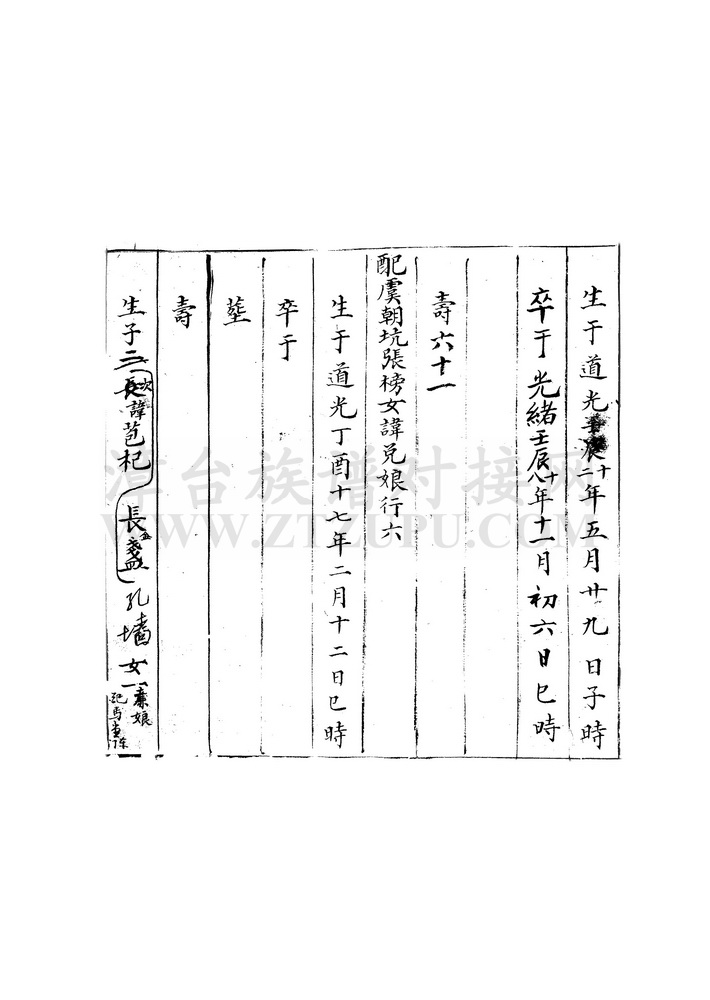 生于道光壬辰十二年五月廿九日子時
卒于光緒壬辰十八年十一月初六日巳時
壽六十一
配虞朝坑張榜女諱兑娘行六
生于道光丁酉十七年二月十二日巳時
卒于
塟
壽
生子二 次諱苞杞 長盞 孔墻 女一
娘
漳台族谱对接网
WWW.ZTZUPU.COM